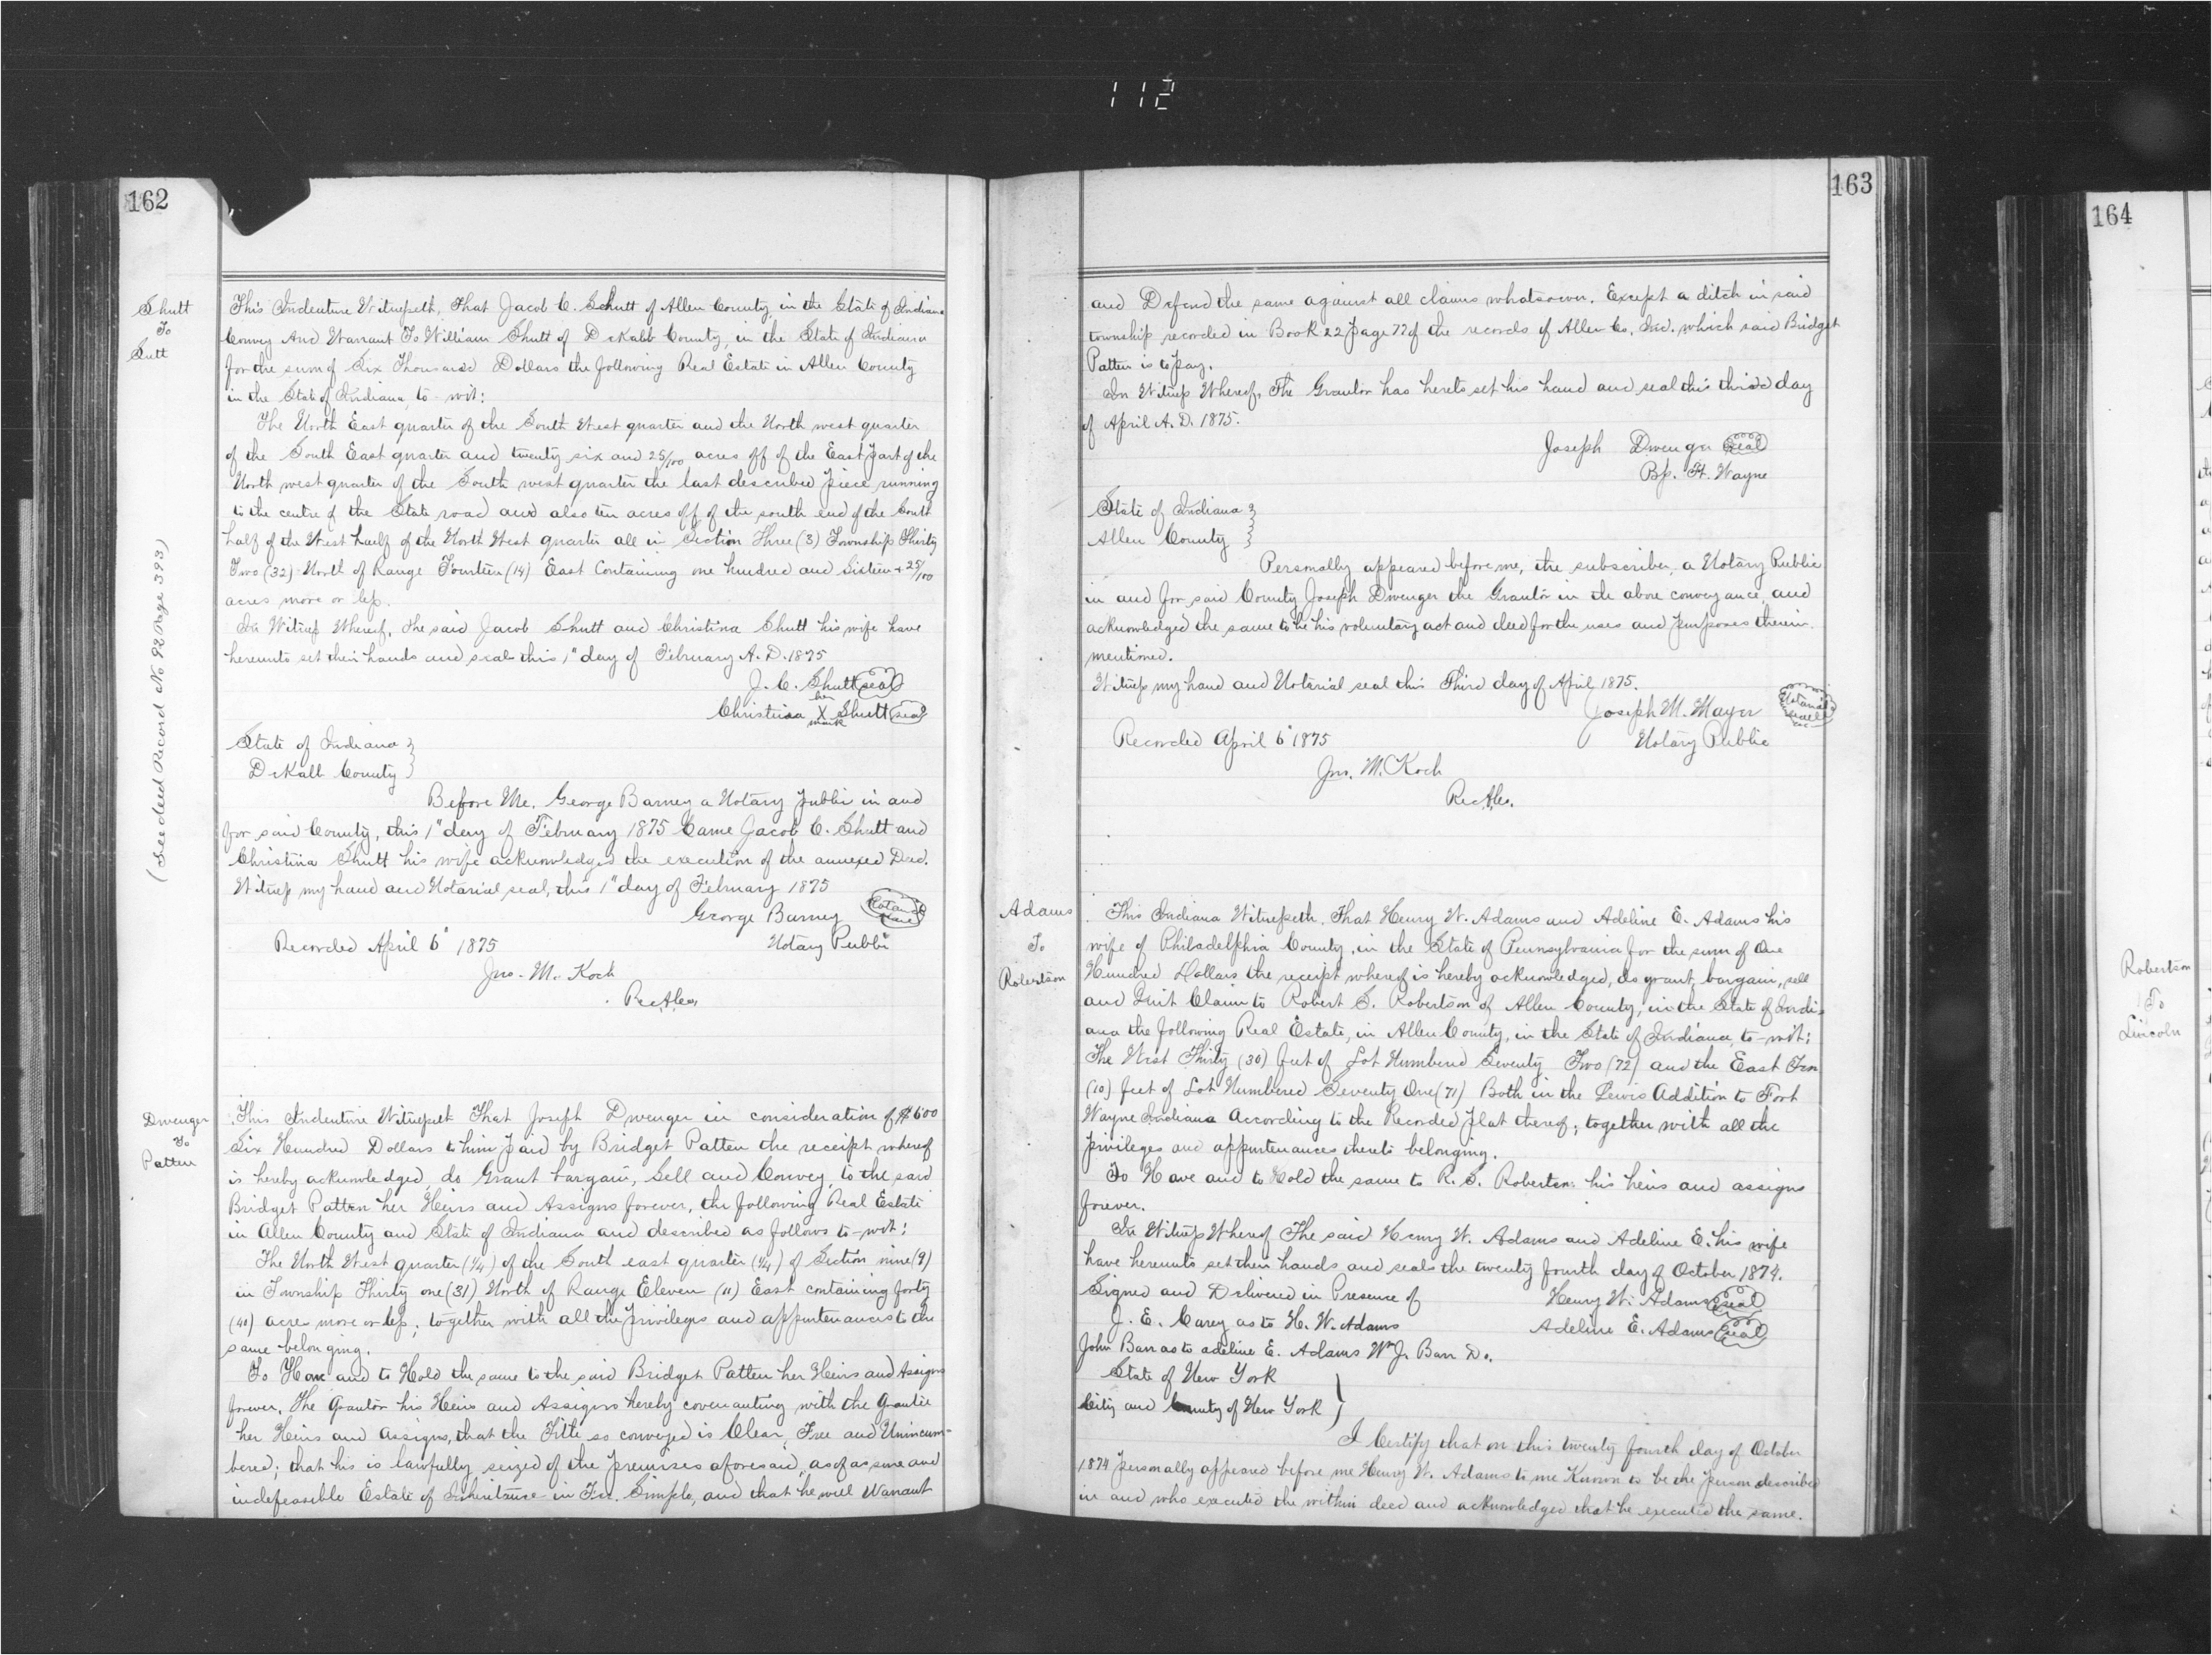 112
162
Shutt
To
Sutt
(See deed Record No 92 Page 393)
This Indenture Witnesseth, That Jacob C. Schutt of Allen County, in the State of Indiana
Convey And Warrant To William Shutt of DeKalb County, in the State of Indiana
for the sum of Six Thousand Dollars the following Real Estate in Allen County
in the State of Indiana, to-wit:
The North East quarter of the South West quarter and the North west quarter
of the South East quarter and twenty six and 25/100 acres off of the East part of the
North west quarter of the South west quarter the last described piece running
to the centre of the State road and also ten acres off of the south end of the South
half of the West half of the North West quarter all in Section Three (3) Township Thirty
Two (32) North of Range Fourteen (14) East Containing one hundred and Sixteen + 25/100
acres more or less.
In Witness Whereof, The said Jacob Shutt and Christina Shutt his wife have
hereunto set their hands and seals this 1" day of February A.D. 1875
J. C. Shutt seal
Christina her X mark Shutt seal
State of Indiana
DeKalb County
Before Me, George Barney a Notary Public in and
for said County, this 1" day of February 1875 Came Jacob C. Shutt and
Christina Shutt his wife acknowledged the execution of the annexed Deed.
Witness my hand and Notarial seal, this 1" day of February 1875
George Barney Notarial
Notary Public
Recorded April 6" 1875
Jno. M. Koch
R.A.Co.
Dwenger
To
Patten
This Indenture Witnesseth That Joseph Dwenger in consideration of $600
Six Hundred Dollars to him paid by Bridget Patten the receipt whereof
is hereby acknowledged, do Grant bargain, Sell and Convey, to the said
Bridget Patten her Heirs and Assigns forever, the following Real Estate
in Allen County and State of Indiana and described as follows to-wit:
The North West quarter (1/4) of the South east quarter (1/4) of Section nine (9)
in Township Thirty one (31) North of Range Eleven (11) East containing forty
(40) acres more or less; together with all the privileges and appurtenances to the
same belonging.
To Have and to Hold the same to the said Bridget Patten her Heirs and Assigns
forever. The Grantor his Heirs and Assigns hereby covenanting with the Grantee
her Heirs and Assigns, that the Title so conveyed is Clear, Free and Unincum-
bered; that his is lawfully seized of the premises aforesaid, as of a sure and
indefeasible Estate of Inheritance in Fee Simple, and that he will Warrant
163
and Defend the same against all claims whatsoever. Except a ditch in said
township recorded in Book 22 page 77 of the records of Allen Co. Ind. which said Bridget
Patten is to pay.
In Witness Whereof, The Grantor has hereto set his hand and seal this third day
of April A.D. 1875.
Joseph Dwenger seal
Bp. Ft. Wayne
State of Indiana
Allen County
Personally appeared before me, the subscriber, a Notary Public
in and for said County Joseph Dwenger the Grantor in the above conveyance, and
acknowledged the same to be his voluntary act and deed for the uses and purposes therein
mentioned.
Witness my hand and Notarial seal this Third day of April 1875.
Joseph M. Mayer Notarial seal
Notary Public
Recorded April 6" 1875
Jno. M. Koch
R.A.Co.
Adams
To
Robertson
This Indiana Witnesseth. That Henry W. Adams and Adeline E. Adams his
wife of Philadelphia County, in the State of Pennsylvania for the sum of One
Hundred Dollars the receipt whereof is hereby acknowledged, do grant, bargain, sell
and Quit Claim to Robert S. Robertson of Allen County, in the State of Indi-
ana the following Real Estate, in Allen County, in the State of Indiana, to-wit:
The West Thirty (30) feet of Lot Numbered Seventy Two (72) and the East Ten
(10) feet of Lot Numbered Seventy One (71) Both in the Lewis Addition to Fort
Wayne Indiana According to the Recorded plat thereof; together with all the
privileges and appurtenances thereto belonging.
To Have and to Hold the same to R. S. Robertson his heirs and assigns
forever.
In Witness Whereof The said Henry W. Adams and Adeline E. his wife
have hereunto set their hands and seals the twenty fourth day of October 1874.
Signed and Delivered in Presence of Henry W. Adams seal
J. E. Carey as to H. W. Adams Adeline E. Adams seal
John Barr as to adeline E. Adams Wm J. Barr Do.
State of New York
City and County of New York
I Certify that on this twenty fourth day of October
1874 personally appeared before me Henry W. Adams to me Known to be the person described
in and who executed the within deed and acknowledged that he executed the same.
164
Robertson
To
Lincoln